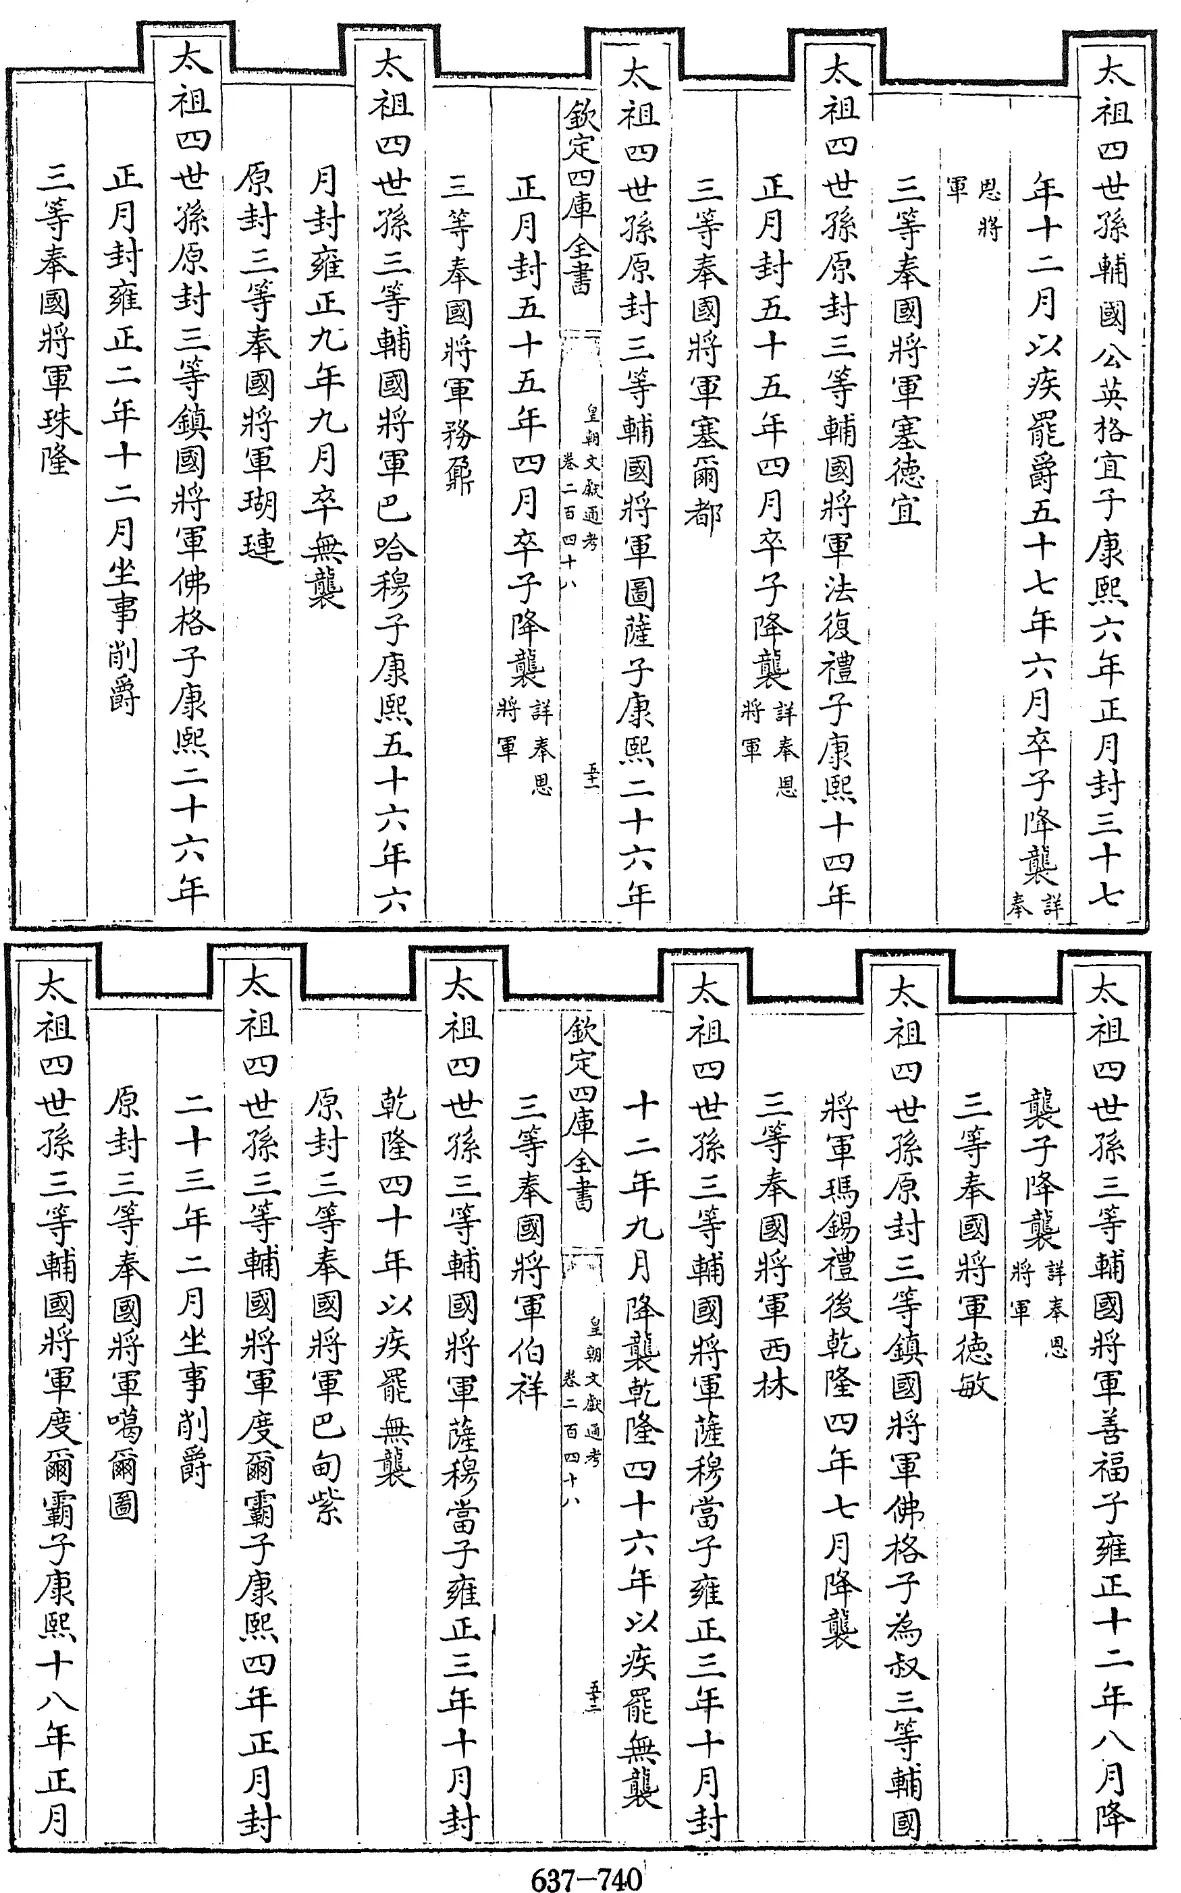 太祖四世孫輔國公英格宜子康熙六年正月封三十七
年十二月以疾罷爵五十七年六月卒子降襲詳奉
恩將軍
三等奉國將軍塞德宜
太祖四世孫原封三等輔國將軍法復禮子康熙十四年
正月封五十五年四月卒子降襲詳奉恩將軍
三等奉國將軍塞爾都
太祖四世孫原封三等輔國將軍圖薩子康熙二十六年
欽定四庫全書
皇朝文獻通考
卷二百四十八
五十二
正月封五十五年四月卒子降襲詳奉恩將軍
三等奉國將軍務鼐
太祖四世孫三等輔國將軍巴哈穆子康熙五十六年六
月封雍正九年九月卒無襲
原封三等奉國將軍瑚璉
太祖四世孫原封三等鎮國將軍佛格子康熙二十六年
正月封雍正二年十二月坐事削爵
三等奉國將軍珠隆
太祖四世孫三等輔國將軍善福子雍正十二年八月降
襲子降襲詳奉恩將軍
三等奉國將軍德敏
太祖四世孫原封三等鎮國將軍佛格子為叔三等輔國
將軍瑪錫禮後乾隆四年七月降襲
三等奉國將軍西林
太祖四世孫三等輔國將軍薩穆當子雍正三年十月封
十二年九月降襲乾隆四十六年以疾罷無襲
欽定四庫全書
皇朝文獻通考
卷二百四十八
五十三
三等奉國將軍伯祥
太祖四世孫三等輔國將軍薩穆當子雍正三年十月封
乾隆四十年以疾罷無襲
原封三等奉國將軍巴甸紫
太祖四世孫三等輔國將軍度爾霸子康熙四年正月封
二十三年二月坐事削爵
原封三等奉國將軍噶爾圖
太祖四世孫三等輔國將軍度爾霸子康熙十八年正月
637-740